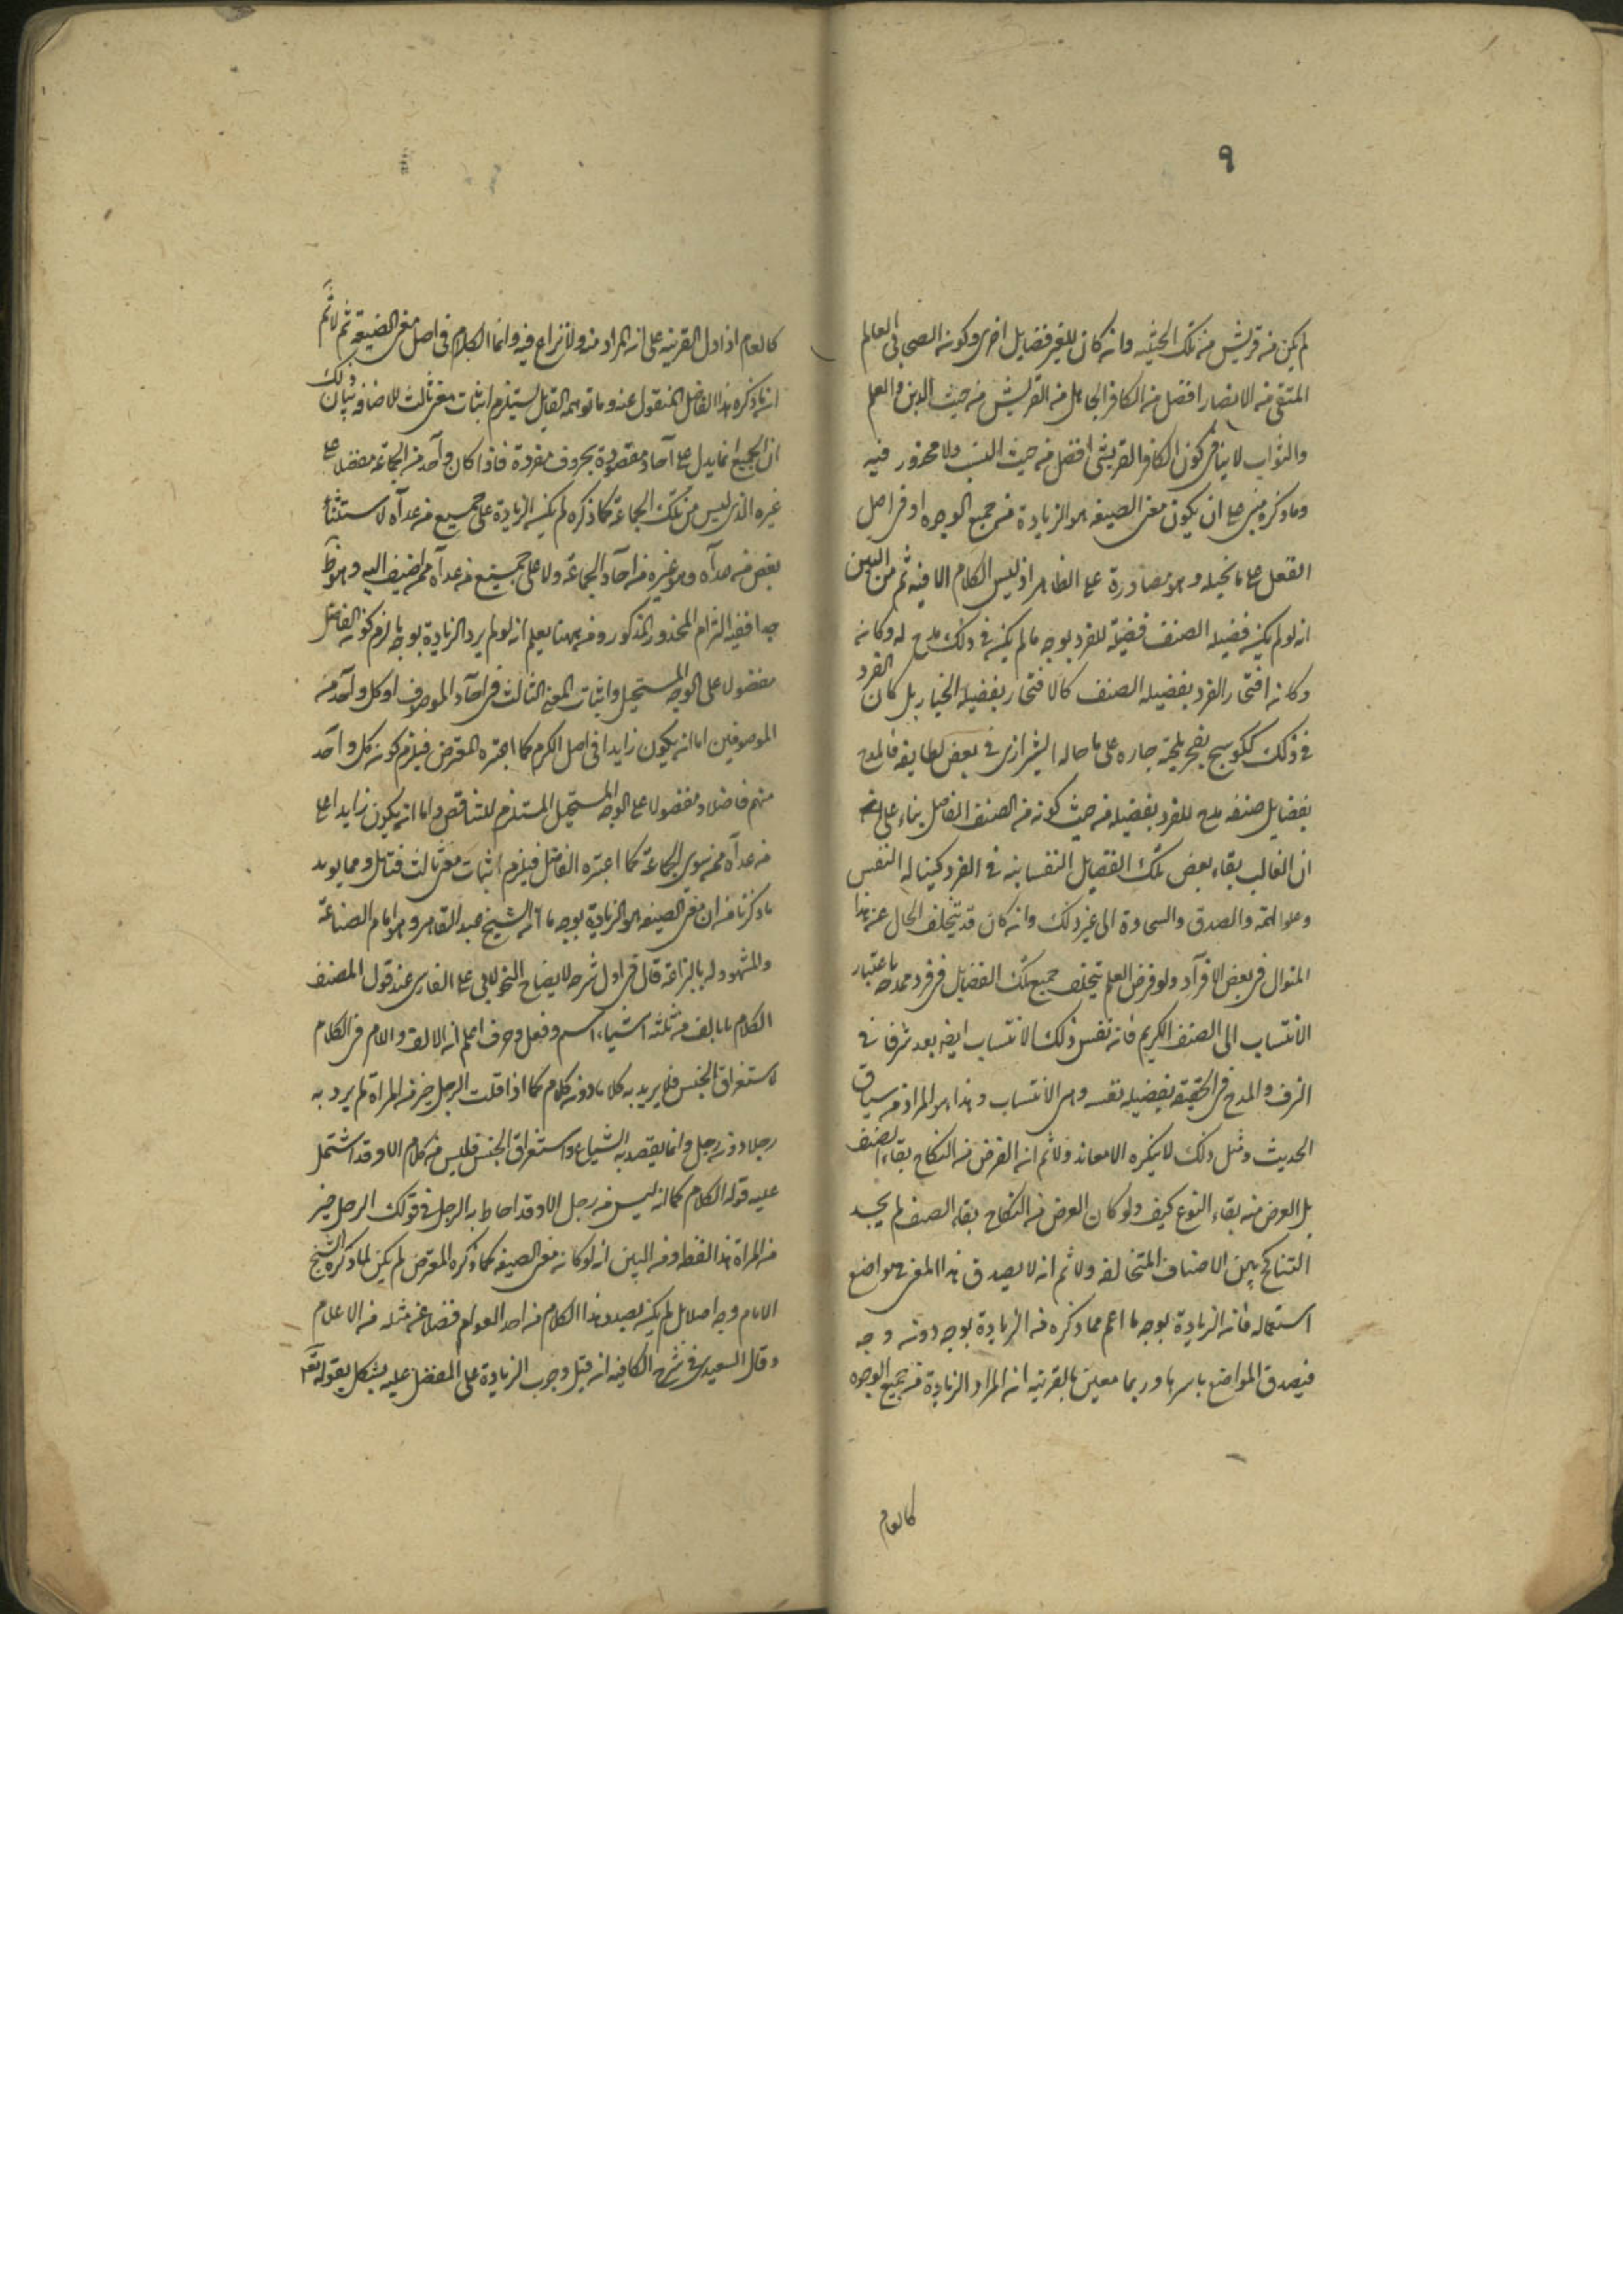 ٩
لم يكن من قريش من تلك الحيثية وان كان للغير فضايل اخرى وكون الصحابي العالم
المتقي من الانصار افضل من الكافر الجاهل من القريش من حيث الدين والعلم
والثواب لا ينافي كون الكافر القريشي افضل من حيث النسب ولا محذور فيه
وما ذكره مبني على ان يكون معنى الصيغه هو الزيادة من جميع الوجوه او في اصل
الفعل على ما تخيله وهو مصادرة على الظاهر اذ ليس الكلام الا فيه ثم من البين
انه لو لم يكن فضيله الصنف فضيلة للفرد بوجه ما لم يكن في ذلك مدح له وكان
وكان افتخار الفرد بفضيله الصنف كالافتخار بفضيلة الخيار بل كان الفرد
في ذلك ككوسج يفخر بلحية جاره على ما حاله الشيرازي في بعض لطايفه فالمدح
بفضايل صنفه مدح للفرد بفضيله من حيث كونه من الصنف الفاضل بناء على انه
ان الغالب بقاء بعض تلك الفضايل النفسانيه في الفرد كخياله النفس
وعلو الهمة والصدق والسخاوة الى غير ذلك وان كان قد يتخلف الحال عن هذا
المنوال في بعض الافراد ولو فرض العلم بتخلف جميع تلك الفضايل في فرد فمدحه باعتبار
الانتساب الى الصنف الكريم فان نفس ذلك الانتساب ايضا يعد شرفا في
الشرف والمدح في الحقيقة بفضيله نفسه وهي الانتساب وهذا هو المراد من سياق
الحديث ومثل ذلك لا ينكره الا معاند ولا ثم ان الغرض من النكاح بقاء الصنف
بل الغرض منه بقاء النوع كيف ولو كان الغرض من النكاح بقاء الصنف لم يجد
التناكح بين الاصناف المتخالفه ولا ثم انه لا يصدق هذا المعنى في مواضع
استعماله فان الزيادة بوجه ما اعم مما ذكره من الزيادة بوجه دون وجه
فيصدق المواضع باسرها وربما معين بالقرينه ان المراد الزيادة من جميع الوجوه
كالعام
كالعام اذا دل القرينه على ان المراد منه ولا نزاع فيه وانما الكلام في اصل معنى الصيغة ثم لا ثم
ان ما ذكره هذا الفاضل المنقول عنه وما توهمه القايل يستلزم اثبات معنى ثالث للاضافه بيان ذلك
ان الجمع انما يدل على آحاد مقصودة بحروف مفردة فاذا كان واحد من الجماعة مفضلا على
غيره الذي ليس من تلك الجماعة كما ذكره لم يكن الزيادة على جميع من عداه لاستثناء
بعض من عداه وهو غيره من آحاد الجماعة ولا على جميع من عداه ممن اضيف اليه وهو ظ
جدا ففيه التزام المحذور المذكور ومن ههنا يعلم انه لو لم يرد الزيادة بوجه ما لزم كون الفاضل
مفضول على الوجه المستحيل واثبات المعنى الثالث في آحاد الموصوف او كل واحد من
الموصوفين اما ان يكون زايدا في اصل الكرم كما اعتبره المعترض فيلزم كون كل واحد
منهم فاضلا ومفضولا على الوجه المستحيل المستلزم للتناقص واما ان يكون زايدا على
من عداه ممن سوى الجماعة كما اعتبره الفاضل فيلزم اثبات معنى ثالث فتامل ومما يويد
ما ذكرنا من ان معنى الصيغه هو الزيادة بوجه ما انه الشيخ عبد القاهر وهو امام الصناعة
والمشهود له بالبراعة قال في اول شرحه لايضاح النحو لابي على الفارسي عند قول المصنف
الكلام يأتلف من ثلثه اشياء اسم وفعل وحرف اعلم ان الالف واللام في الكلام
لاستغراق الجنس فلا يريد به كلاما دون كلام كما اذا قلت الرجل خير من المراة لم يرد به
رجلا دون رجل وانما يقصد به الشياع واستغراق الجنس فليس من كلام الا وقد اشتمل
عليه قوله الكلام كما انه ليس من رجل الا وقد احاط به الرجل في قولك الرجل خير
من المراة هذا لفظه ومن البين انه لو كان معنى الصيغه كما ذكره المعترض لم يكن لما ذكره الشيخ
الامام وجه اصلا بل لم يكن يصدر هذا الكلام من احد العوام فضلا عن مثله من الاعلام
وقال السعيدي في شرح الكافيه ان قيل وجوب الزيادة على المفضل عليه يشكل بقوله تعه